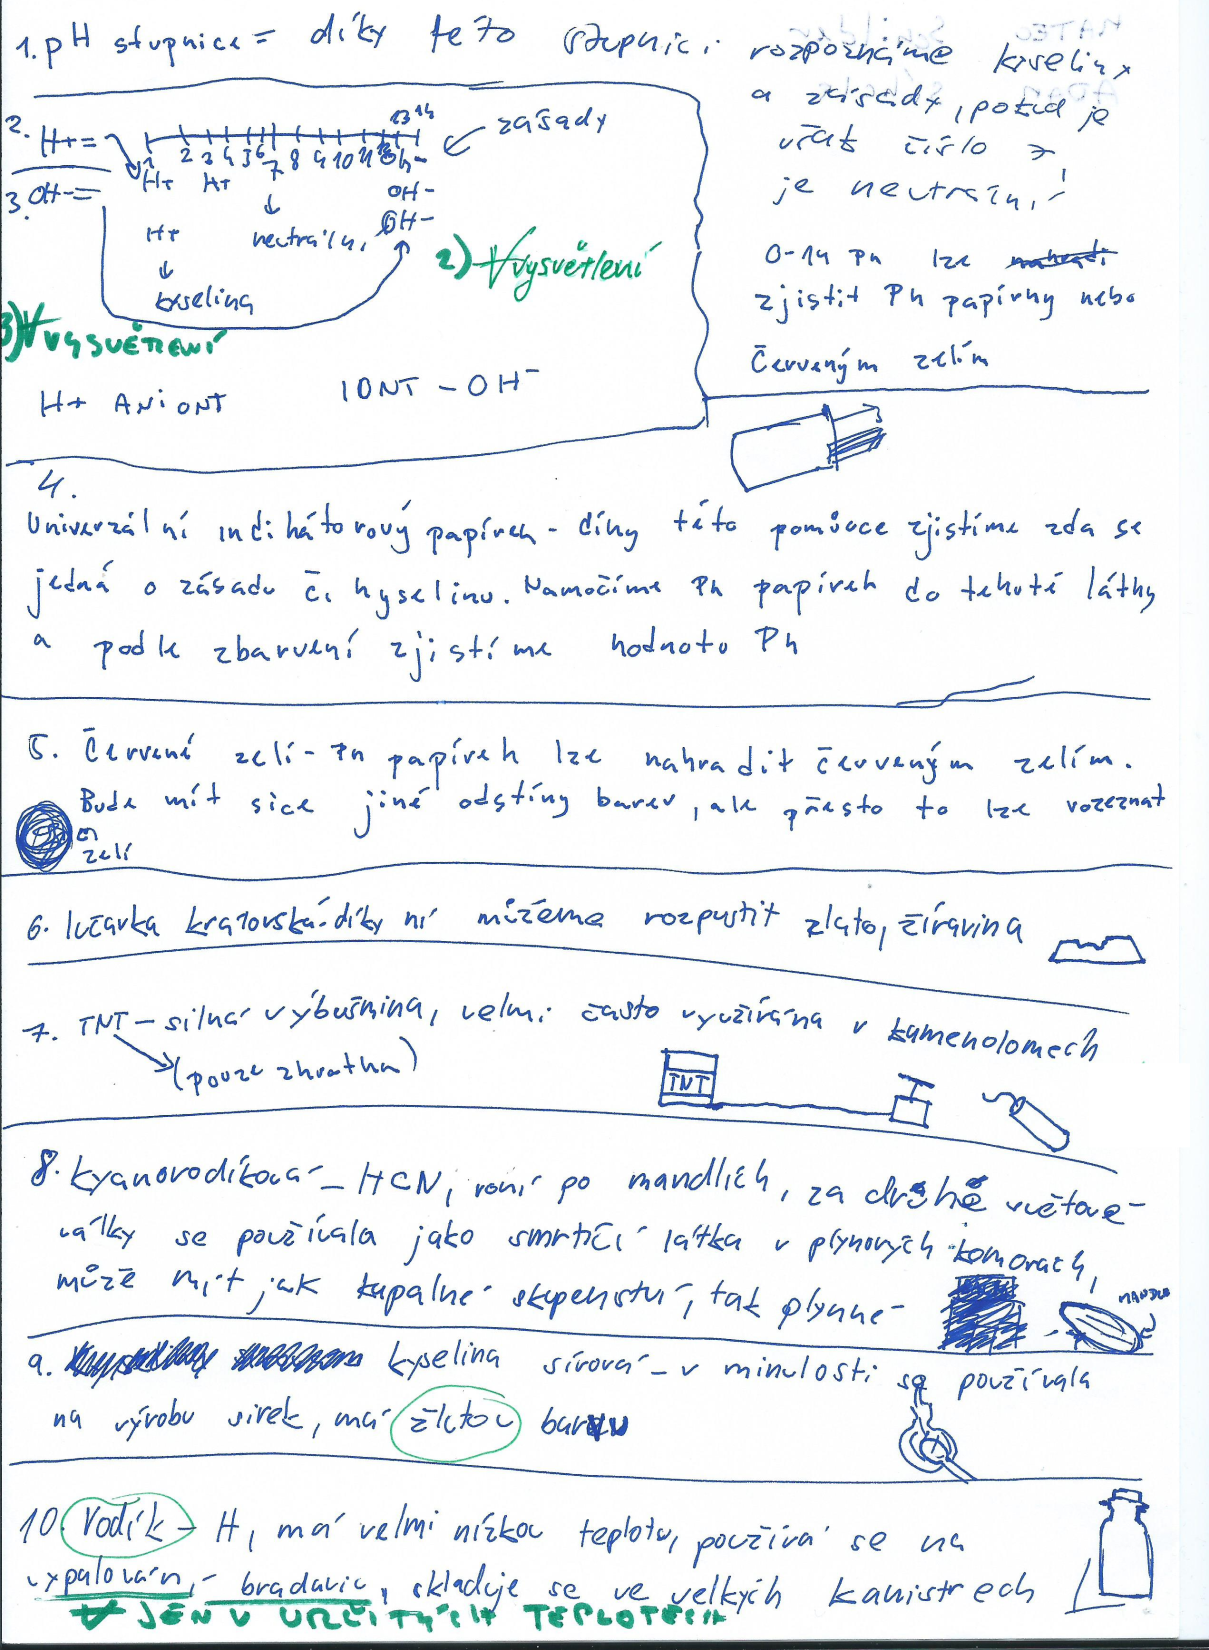 1. pH stupnice = díky této stupnici rozpoznáme kyseliny
a zásady, pokud je
určit číslo 7
je neutrální
0-14 Ph lze
zjistit Ph papírky nebo
Červeným zelím
2. H+ =
1 2 3 4 5 6 7 8 9 10 11 12 13 14
← zásady
H+ H+ OH-
3. OH- =
OH-
H+ neutrální OH-
↓
kyselina
2) Vysvětlení
3) Vysvětlení
H+ ANiONT IONT - OH-
4.
Univerzální indikátorový papírek - díky této pomůcce zjistíme zda se
jedná o zásadu či kyselinu. Namočíme Ph papírek do tekuté látky
a podle zbarvení zjistíme hodnoto Ph
5. Červené zelí - Ph papírek lze nahradit červeným zelím.
Bude mít sice jiné odstíny barev, ale přesto to lze rozeznat
zelí
6. lučavka královská - díky ní můžeme rozpustit zlato, žíravina
7. TNT - silná výbušnina, velmi často využívána v kamenolomech
(pouze zkratka)
TNT
8. kyanovodíková - HCN, voní po mandlích, za druhé světové
války se používala jako smrtící látka v plynových komorách,
může mít jak kapalné skupenství, tak plynné
MANDLE
9. kyselina sírová - v minulosti se používala
na výrobu sirek, má žlutou barvu
10. Vodík - H, má velmi nízkou teplotu, používá se na
vypalování bradavic, skladuje se ve velkých kanistrech
V JEN V URČITÝCH TEPLOTÁCH